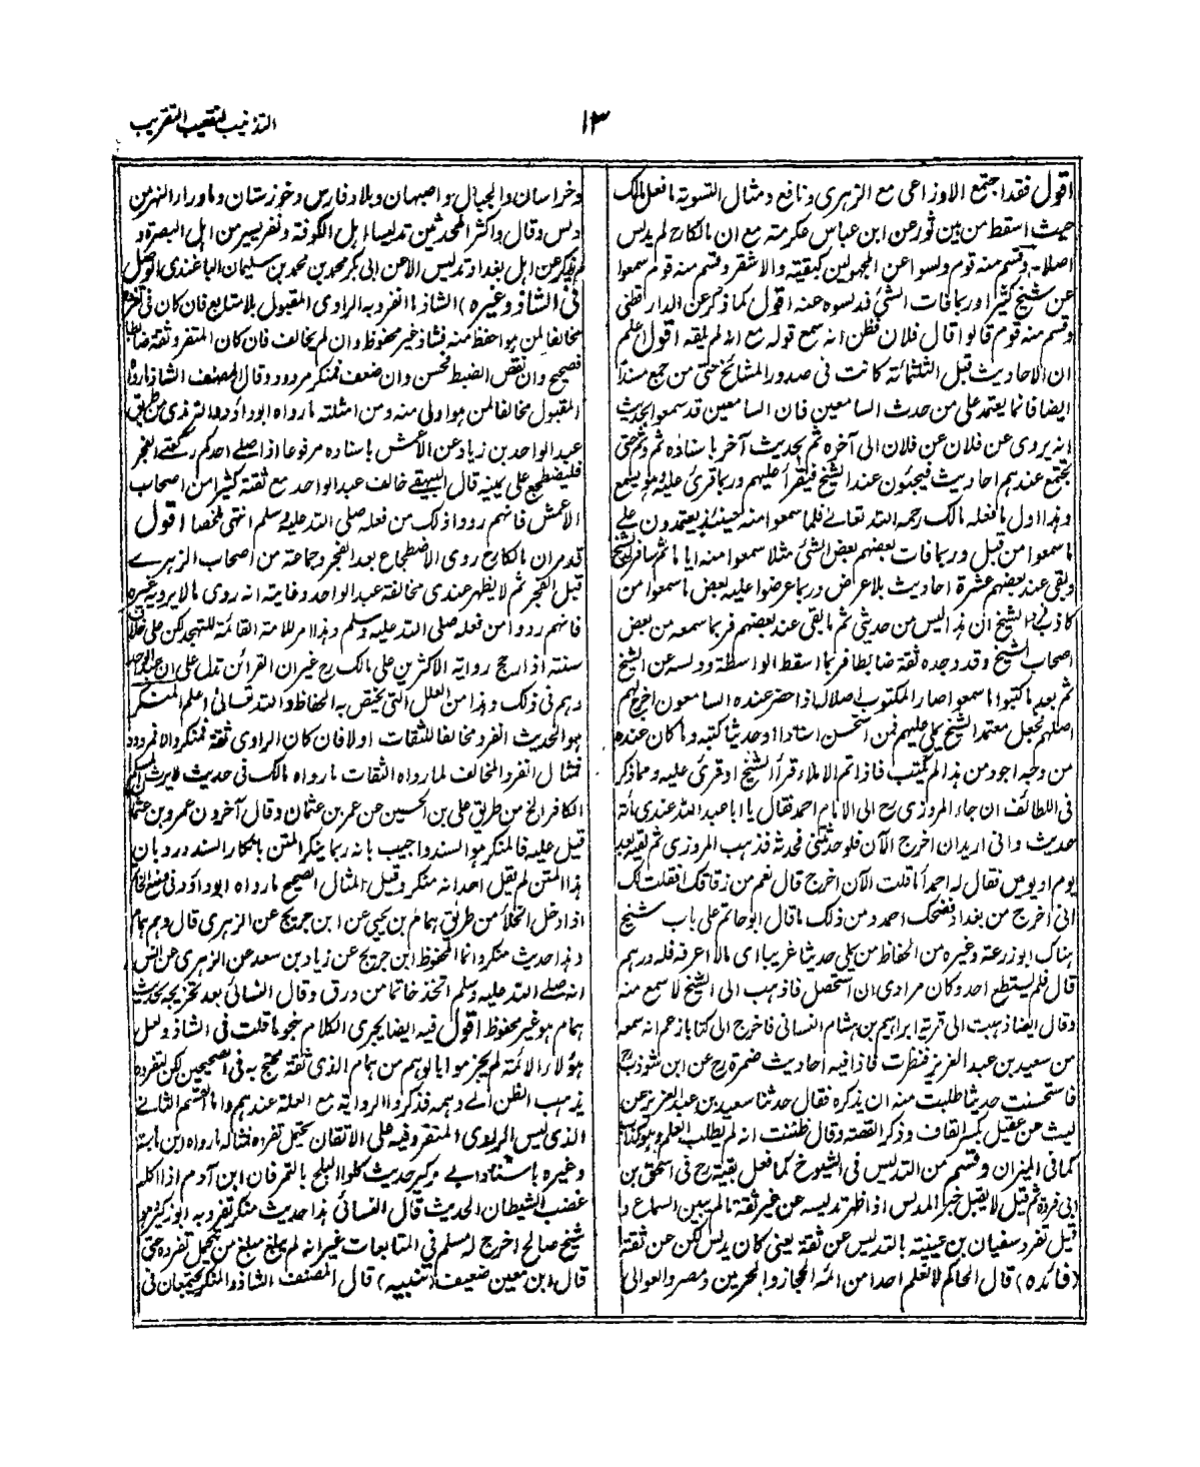 التذنيب لتعقيب التقريب
١٣
اقول فقد اجتمع الاوزاعى مع الزهرى ونافع ومثال التسوية ما فعل مالك
حيث اسقط من بين ثور عن ابن عباس عكرمته مع ان مالكا رح لم يدلس
اصلا - وقسم منه قوم دلسوا عن المجهولين كبقيته والاشقر وقسم منه قوم سمعوا
عن شيخ كثيرا وربما فات الشئ فدلسوه عنه اقول كما ذكر عن الدارقطنى
وقسم منه قوم قالوا قال فلان فظن انه سمع قوله مع انه لم يلقه اقول اعلم
ان الاحاديث قبل الثلثمائة كانت فى صدور المشائخ حتى من جمع مسندا
ايضا فانما يعتمد على من حدث السامعين فان السامعين قد سمعوا الحديث
انه يروى عن فلان عن فلان الى آخره ثم بحديث آخر باسناده ثم وثم حتى
يجتمع عندهم احاديث فيجيئون عند الشيخ فيقرأ عليهم وربما قرئ عليه وهو يسمع
وهذا اول ما فعله مالك رحمه الله تعالے فلما سمعوا منه حينئذ يعتمدون علے
ما سمعوا من قبل وربما فات بعضهم بعض الشئ مثلا سمعوا منه اياما ثم سافر الشيخ
وبقى عند بعضهم عشرة احاديث بلا عرض وربما عرضوا عليه بعض ما سمعوا من
كاذب الشيخ ان هذا ليس من حديثى ثم ما بقى عند بعضهم فربما سمعه من بعض
اصحاب الشيخ وقد وجده ثقة ضابطا فربما اسقط الواسطة ودلسه عن الشيخ
ثم بعد ما كتبوا ما سمعوا صار المكتوب اصلا لهذا حضر عنده السامعون اخرج لهم
اصلهم فجعل معتمدا الشيخ يملى عليهم فمن استحسن استاذا او حديثا كتبه وما كان عنده
من وجه اجود من هذا لم يكتب فاذا تم الاملاء قرأ الشيخ او قرئ عليه ومما ذكر
فى اللطائف ان جاء المروزى رح الى الامام احمد فقال يا ابا عبد الله عندى مأته
حديث وانى اريد ان اخرج الآن فلو حدثتنى فحدثه فذهب المروزى ثم لقيه بعد
يوم او يومين فقال له احمد أما قلت الآن اخرج قال نعم من زقاقك افقلت لك
انى اخرج من بغداد فضحك احمد ومن ذلك ما قال ابوحاتم على باب شيخ
هناك ابو زرعة وغيره من الحفاظ من يملى حديثا غريبا اى مالا اعرفه فله درهم
قال فلم يستطع احد وكان مرادى ان استحصل فاذهب الى الشيخ لاسمع منه
وقال ايضا ذهبت الى قرية ابراهيم بن هشام الغسانى فاخرج الى كتابا زعم انه سمعه
من سعيد بن عبد العزيز فنظرت فاذا فيه احاديث ضمرة رح عن ابن شوذب رح
فاستحسنت حديثا طلبت منه ان يذكره فقال حدثنا سعيد بن عبد العزيز عن
ليث عن عقيل بكسر القاف وذكر القصة وقال ظننت انه لم يطلب العلم وهو كذاب
كما فى الميزان وقسم من التدليس فى الشيوخ كما فعل بقية رح فى اسحق بن
ابى فروة ثم قيل لا يقبل خبر المدلس اذا ظهر تدليسه عن غير ثقة ما لم يبين السماع وا
قيل تفرد سفيان بن عيينة بالتدليس عن ثقة يعنى كان يدلس لكن عن ثقة
(فائده) قال الحاكم لا نعلم احدا من ائمة الحجاز والبحرين ومصر والعوالى
وخراسان والجبال واصبهان وبلاد فارس وخوزستان وماوراء النهر من
دلس وقال واكثر المحدثين تدليسا اهل الكوفة ونفر يسير من اهل البصرة و
لم يذكر عن اهل بغداد تدليس الا عن ابى بكر محمد بن محمد بن سليمان الباغندى الوصل
فى الشاذ وغيره) الشاذ ما انفرد به الراوى المقبول بلا متابع فان كان فى تفرده
مخالفا لمن هو احفظ منه فشاذ غير محفوظ وان لم يخالف فان كان المتفرد ثقة ضابطا
فصحيح وان نقص الضبط فحسن وان ضعف فمنكر مردود وقال المصنف الشاذ ما رواه
المقبول مخالفا لمن هو اولى منه ومن امثلته ما رواه ابوداؤد والترمذى من طريق
عبد الواحد بن زياد عن الاعمش باسناده مرفوعا اذا صلے احدكم ركعتے الفجر
فليضطجع على يمينه قال البيهقے خالف عبد الواحد مع ثقة كثيرا من اصحاب
الاعمش فانهم رووا ذلك من فعله صلى الله عليه وسلم انتهى ملخصا اقول
قد مر ان مالكا رح روى الاضطجاع بعد الفجر وجماعة من اصحاب الزهرے
قبل الفجر ثم لا يظهر عندى مخالفة عبد الواحد وغايته انه روى ما لا يرويه غيره
فانهم رووا من فعله صلى الله عليه وسلم وهذا امر للامة القائمة للتهجد لكن على خلاف
سنته اذا رجح رواية الاكثرين على مالك رح غير ان القرائن تدل على ان عبد الواحد
وهم فى ذلك وهذا من العلل التى يختص به الحفاظ والله تعالى اعلم المنكر
هو الحديث الفرد مخالفا للثقات اولا فان كان الراوى ثقة فمنكر والا فمردود
فمثال الفرد المخالف لما رواه الثقات ما رواه مالك فى حديث لا يرث المسلم
الكافر الخ من طريق على بن الحسين عن عمر بن عثمان وقال آخرون عمرو بن عثمان
قيل عليه فالمنكر هو السند واجيب بانه ربما ينكر المتن بانكار السند ورد بان
هذا المتن لم يقل احد انه منكر وقيل المثال الصحيح ما رواه ابوداؤد فى وضع الخاتم
اذا دخل الخلاء من طريق همام بن يحيى عن ابن جريج عن الزهرى قال وهم همام
وهذا حديث منكر وانما المحفوظ ابن جريج عن زياد بن سعد عن الزهرى عن انس
انه صلے الله عليه وسلم اتخذ خاتما من ورق وقال النسائى بعد تخريجه لحديث
همام هو غير محفوظ اقول فيه ايضا يجرى الكلام نحو ما قلت فى الشاذ ولعل
هؤلاء الائمة لم يجزموا بالوهم من همام الذى ثقة محتج به فى الصحيحين لكن لتفرده
يذهب الظن الے وهمه فذكروا الرواية مع العلة عندهم واما القسم الثانے
الذى ليس لراوى المتفرد فيه على الاتقان يحتمل تفرده فمثاله ما رواه ابن ماجة
وغيره باسناد ابے زكير حديث كلوا البلح بالتمر فان ابن آدم اذا اكله
غضب الشيطان الحديث قال النسائى هذا حديث منكر تفرد به ابو زكير هو
شيخ صالح اخرج له مسلم فى المتابعات غير انه لم يبلغ مبلغ من يحتمل تفرده حتى
قال ابن معين ضعيف (تنبيه) قال المصنف الشاذ والمنكر يجتمعان فى